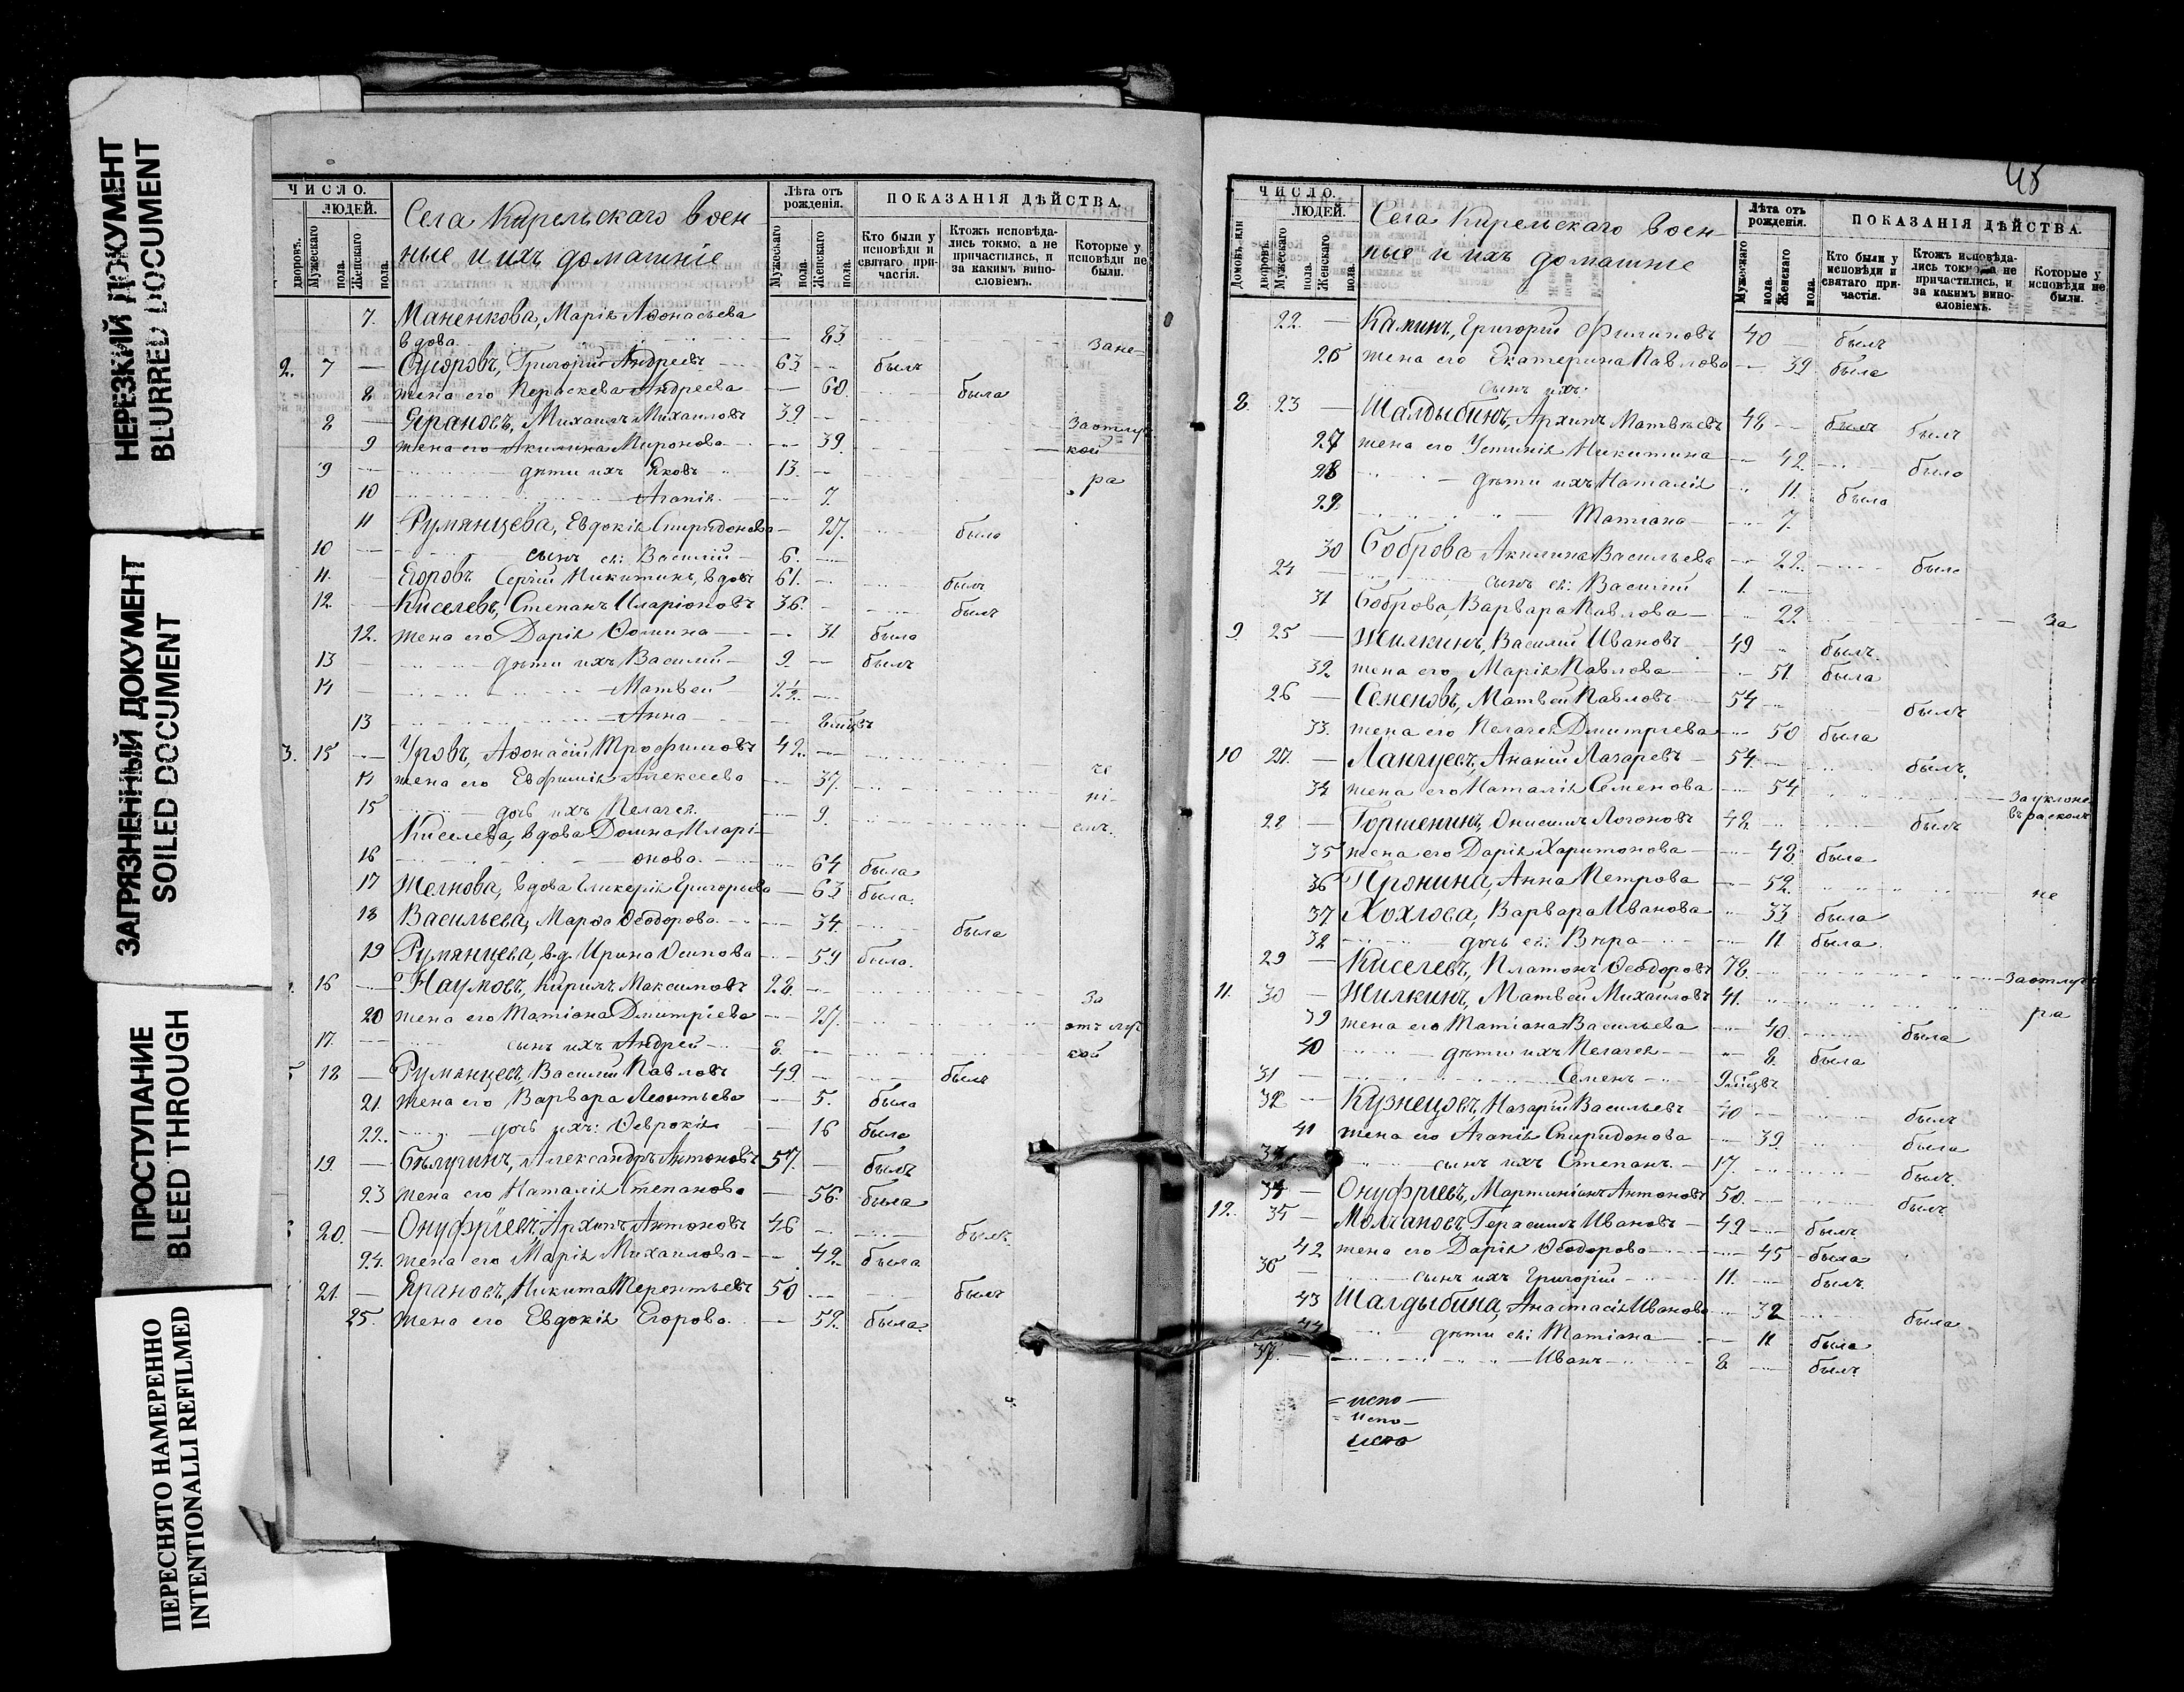 НЕРЕЗКИЙ ДОКУМЕНТ
BLURRED DOCUMENT
ЗАГРЯЗНЕННЫЙ ДОКУМЕНТ
SOILED DOCUMENT
ПРОСТУПАНИЕ
BLEED THROUGH
ПЕРЕСНЯТО НАМЕРЕННО
INTENTIONALLI REFILMED
ЧИСЛО.
ЛЮДЕЙ.
дворовъ.
Мужескаго пола.
Женскаго пола.
Села Кирельскаго воен
ные и ихъ домашніе
Лѣта отъ рожденія.
Мужескаго пола.
Женскаго пола.
ПОКАЗАНІЯ ДѢЙСТВА.
Кто были у исповѣди и святаго причастія.
Ктожъ исповѣдались токмо, а не причастились, и за какимъ винословіемъ.
Которые у исповѣди не были.
7. Маненкова, Марія Аѳонасьева
вдова 83 Зане-
2. 7 Григорій Андреевъ 63 былъ
8 жена его Параскева Андреева 60. была
8 Ярановъ, Михаилъ Михаиловъ 39 Заотлуч
9 жена его Акилина Миронова 39. кой
9 дѣти ихъ Яковъ 13. ра
10 Агапія 7
11 Румянцева, Евдокія Спиридонова 27. была
10 сынъ ея: Василій 6.
11. Егоровъ Сергій Никитинъ, вдовъ 61. былъ
12. Киселевъ, Степанъ Иларіоновъ 36. былъ
12. жена его Дарія Ѳомина 31 была
13 дѣти ихъ Василій 9. былъ
14 Матвей 2½
13 Анна
3. 15 Уровъ, Аѳонасій Трофимовъ 42.
14 жена его Евфимія Алексеева 37.
15 дочь ихъ Пелагея 9
Киселева, вдова Домна Иларі-
16 онова. 64 была
17 вдова Гликерія Григорьева 63 была.
18 Васильева, Марѳа Ѳеодорова 34. была
19 Румянцева, вд. Ирина Осипова 59 была.
16 Наумовъ, Кирилъ Максимовъ 28. За
20 жена его Татіана Дмитріева 27. отлуч
17. сынъ ихъ Андрей 8. кой
18 Румянцевъ, Василій Павловъ 49. былъ
21. жена его Варвара Леонтьева 5. была
22. дочь ихъ: Ѳеврокія 16 была
19. Бѣлугинъ, Александръ Антоновъ 57. былъ
23 жена его Наталія Степанова 56. была
20. Онуфріевъ, Архипъ Антоновъ 46 былъ
24. жена его Марія Михаилова 42. была
21. Ярановъ, Никита Терентьевъ 50 былъ
25. жена его Евдокія Егорова. 52. была.
ЧИСЛО.
ЛЮДЕЙ.
Домовъ, или дворовъ.
Мужескаго пола.
Женскаго пола.
Села Кирельскаго воен
ные и ихъ домашніе
Лѣта отъ рожденія.
Мужескаго пола.
Женскаго пола.
ПОКАЗАНІЯ ДѢЙСТВА.
Кто были у исповѣди и святаго причастія.
Ктожъ исповѣдались токмо, а не причастились, и за каким вино словіемъ.
Которые у исповѣди не были.
22. Каминъ, Григорій Филиповъ 40 былъ
26 жена его Екатерина Павлова 39 была
сынъ ихъ:
8. 23 Шалдыбинъ, Архипъ Матвѣевъ 48 былъ былъ
27 жена его Устинія Никитина 42. была
28 дѣти ихъ Наталія 11. была
29 Татіана 7.
30 Боброва Акилина Васильева 22. была
24 сынъ ея: Василій 1.
31 Боброва, Варвара Павлова 22. За
9. 25 Жилкинъ, Василій Ивановъ 49 былъ.
32 жена его Марія Павлова 51 была
26 Семеновъ, Матвей Павловъ 54 былъ
33. жена его Пелагея Дмитріева 50 была
10 27. Лангуевъ, Ананій Лазаревъ 54. былъ.
34 жена его Наталія Семенова 54 Зауклоне
28 Горшенинъ, Онисимъ Логоновъ 48 былъ въ расколъ
35 жена его Дарія Харитонова 48 была
36 Пронина, Анна Петрова 52. не
37 Хохлова, Варвара Иванова 33 была
38 дочь ея: Вѣра 11 была.
29 Киселевъ, Платонъ Ѳеодоровъ 78. Заотлуч
11. 30 Жилкинъ, Матвей Михаиловъ 41. ра
39 жена его Татіана Васильева 40 была
40 дѣти ихъ Пелагея 8. была
31 Семенъ 9 мѣсцвъ
32 Кузнецовъ, Назарій Васильевъ 40 былъ
41 жена его Агапія Спиридонова 39 была
сынъ ихъ Степанъ. 17. былъ.
34 Онуфріевъ, Мартиніанъ Антоновъ 50. былъ
12. 35 Молчановъ, Герасимъ Ивановъ 49 былъ
42 жена его Дарія Ѳеодорова 45 была
36 сынъ ихъ Григорій 11. былъ.
43 Шалдыбина, Анастасія Иванова 32 была
44 дѣти ея: Татіана 11 была
37. Иванъ 8 былъ
= испо —
= испо —
испо